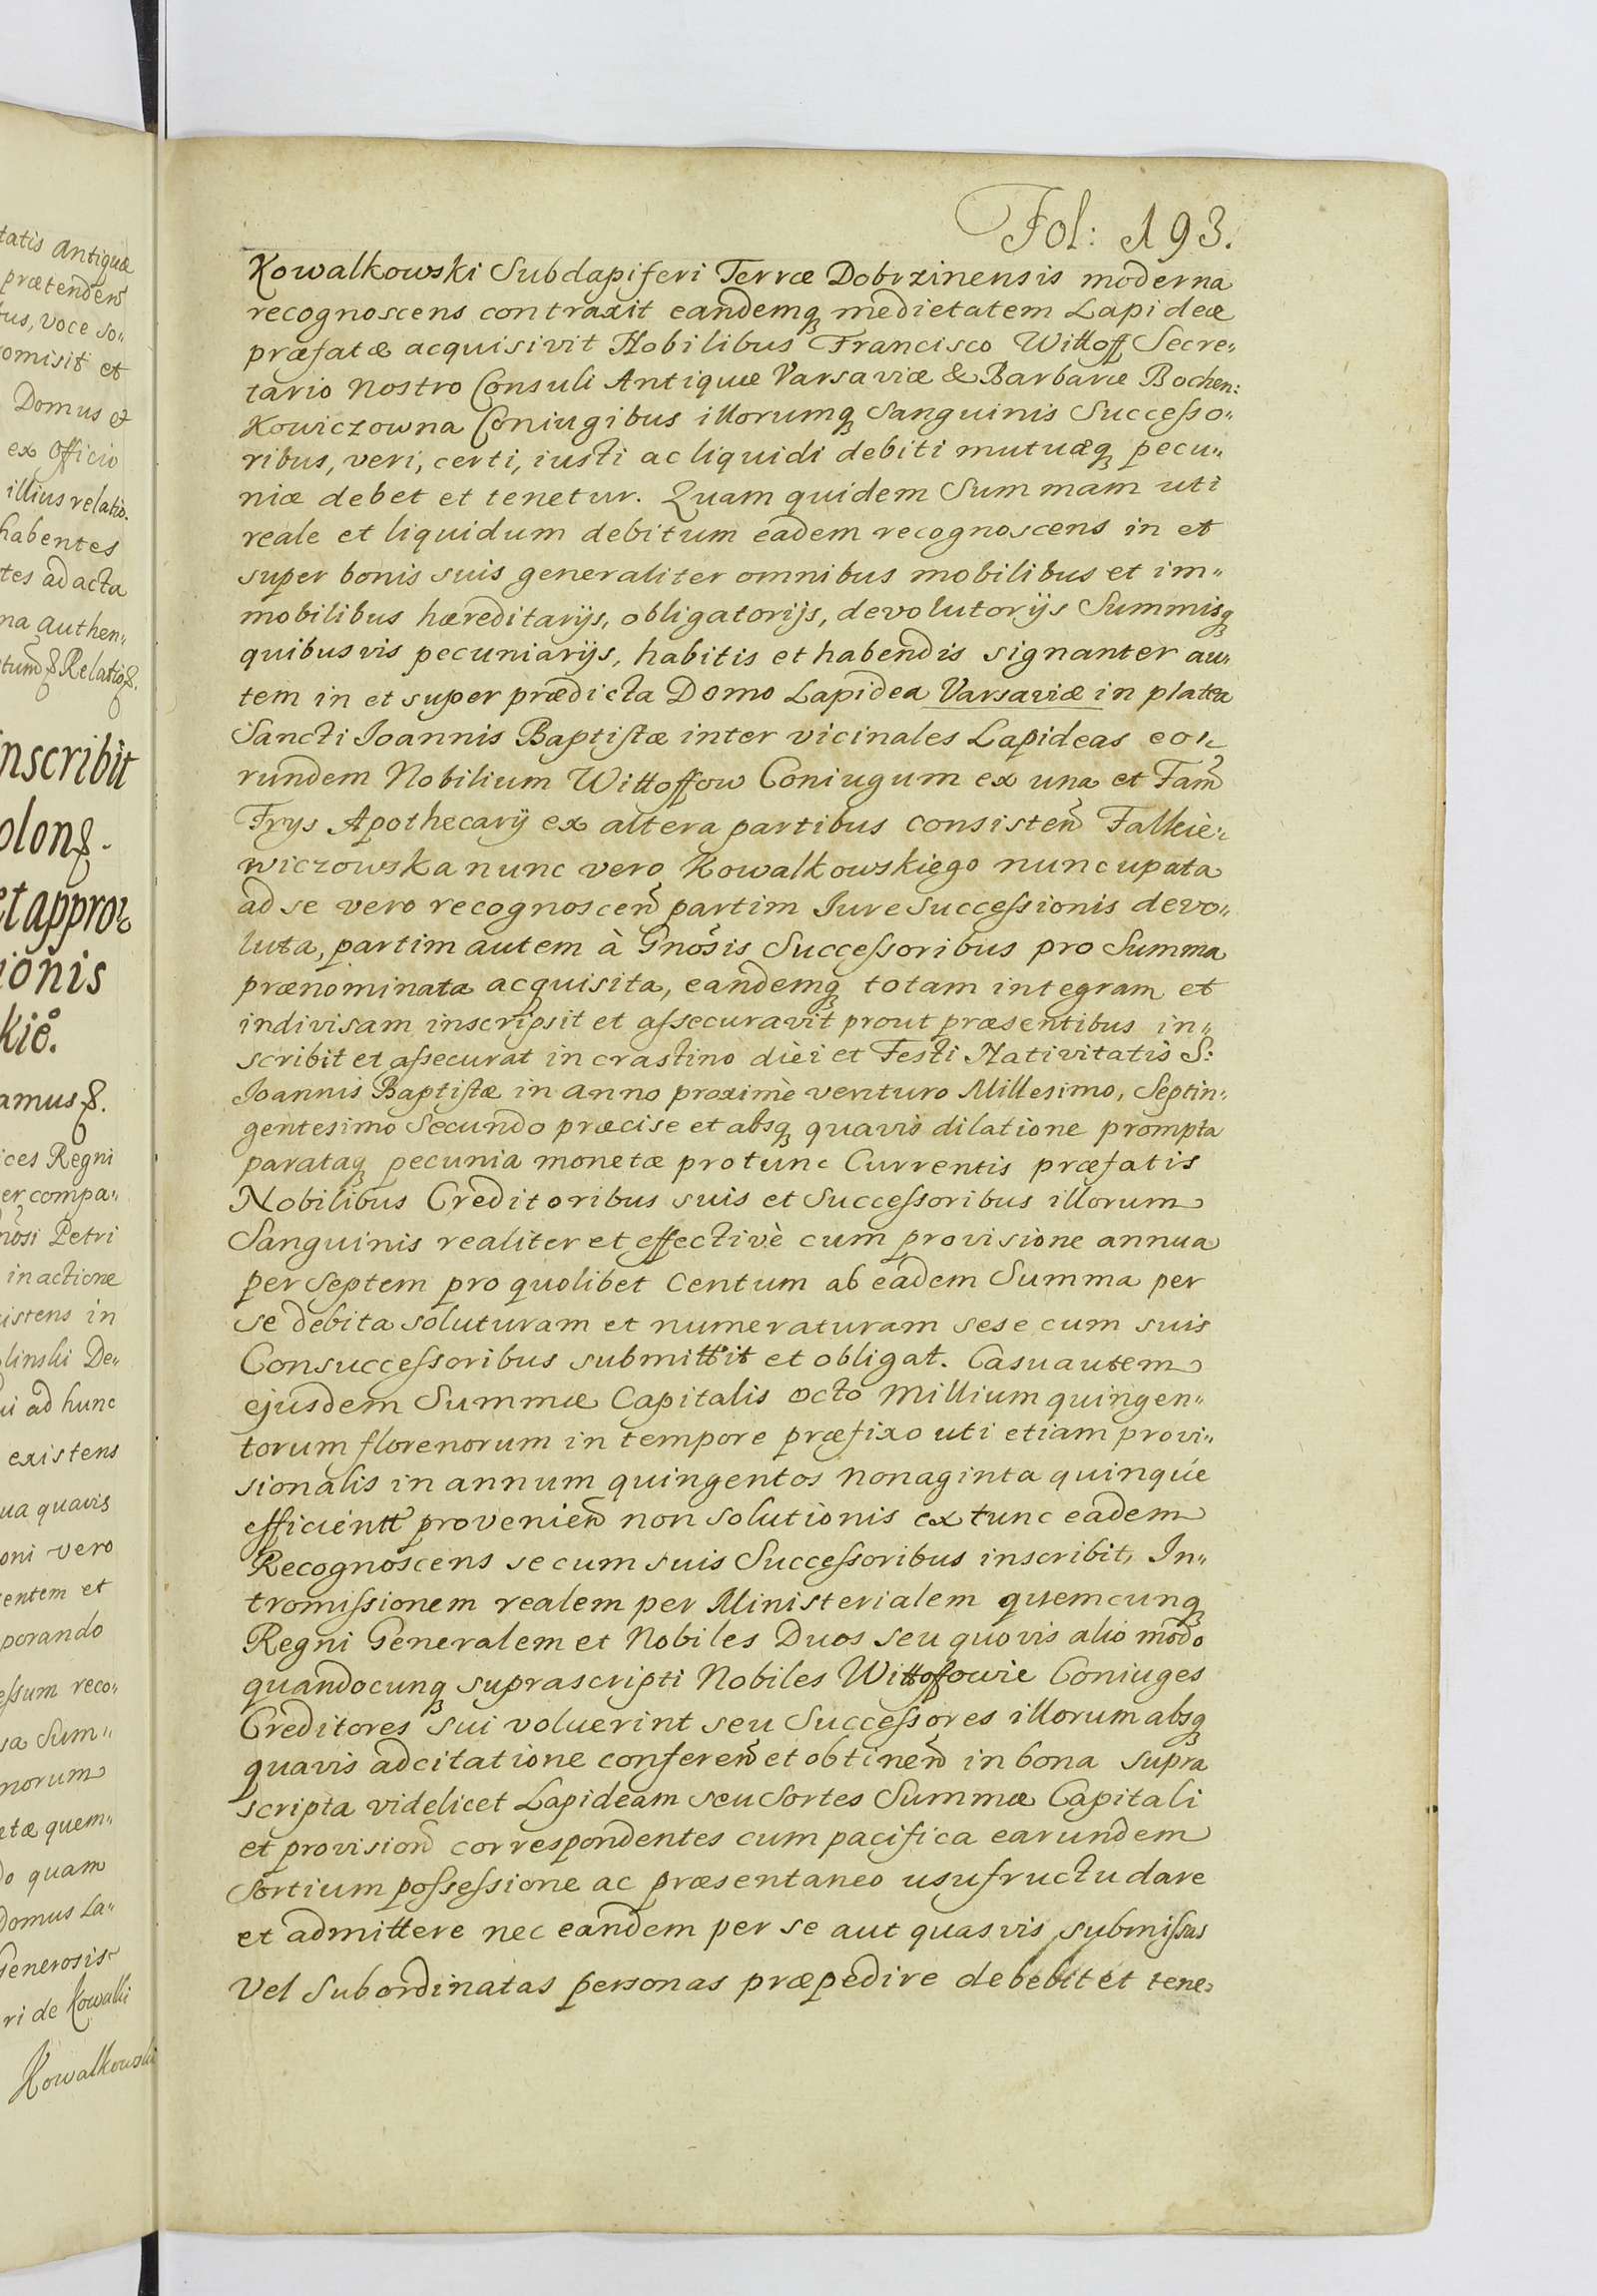 Fol: 193.
Kowalkowski Subdapiferi Terræ Dobrzinensis moderna
recognoscens contraxit eandemq medietatem Lapideæ
præfatæ acquisivit Nobilibus Francisco Wittoff Secre„
tario Nostro Consuli Antiquæ Varsaviæ & Barbaræ Bochen:
Kowiczowna Coniugibus illorumq Sanguinis Successo„
ribus, veri, certi, iusti ac liquidi debiti mutuæq pecu„
niæ debet et tenetur. Quam quidem Summam uti
reale et liquidum debitum eadem recognoscens in et
super bonis suis generaliter omnibus mobilibus et im„
mobilibus hæreditarijs, obligatorijs, devolutorijs Summisq
quibusvis pecuniarijs, habitis et habendis signanter au„
tem in et super prædicta Domo Lapidea Varsaviæ in platea
Sancti Joannis Baptistæ inter vicinales Lapideas eor„
rundem Nobilium Wittoffow Coniugum ex una et Fam̃
Frys Apothecarij ex altera partibus consisteñ Falkie„
wiczowska nunc vero Kowalkowskiego nuncupata
ad se vero recognosceñ partim Jure Successionis devo„
luta, partim autem à Gnõsis Successoribus pro Summa
prænominata acquisita, eandemq totam integram et
indivisam inscripsit et assecuravit prout præsentibus in„
scribit et assecurat in crastino diei et Festi Nativitatis S:
Joannis Baptistæ in anno proximè venturo Millesimo, Septin„
gentesimo Secundo præcise et absq quavis dilatione prompta
parataq pecunia monetæ protunc Currentis præfatis
Nobilibus Creditoribus suis et Successoribus illorum
Sanguinis realiter et effectivè cum provisione annua
per Septem pro quolibet Centum ab eadem Summa per
se debita soluturam et numeraturam sese cum suis
Consuccessoribus submittit et obligat. Casu autem
ejusdem Summæ Capitalis octo Millium quingen„
torum florenorum in tempore præfixo uti etiam provi„
sionalis in annum quingentos nonaginta quinque
efficientt provenieñ non solutionis ex tunc eadem
Recognoscens se cum suis Successoribus inscribit, In„
tromissionem realem per Ministerialem quemcunq
Regni Generalem et Nobiles Duos seu quovis alio modo
quandocunq suprascripti Nobiles Wittoffowie Coniuges
Creditores sui voluerint seu Successores illorum absq
quavis adcitatione confereñ et obtineñ in bona supra
scripta videlicet Lapideam seu Sortes Summæ Capitali
et provisioñ correspondentes cum pacifica earundem
Sortium possessione ac præsentaneo usufructu dare
et admittere nec eandem per se aut quasvis submissas
vel subordinatas personas præpedire debebit et tene„
tatis antiquæ
prætendeñ
tus, voce so„
omisit et
Domus et
ex officio
illius relatio„
habentes
tes ad acta
na authen„
nscribit
et appro„
ionis
ices Regni
er compa„
nõsi Petri
in actione
istens in
linski De„
ui ad hunc
existens
ua quavis
oni vero
entem et
porando
essum reco„
sa Sum„
norum
etæ quem„
do quam
domus La„
Generosis
ri de Kowalki
Kowalkowski